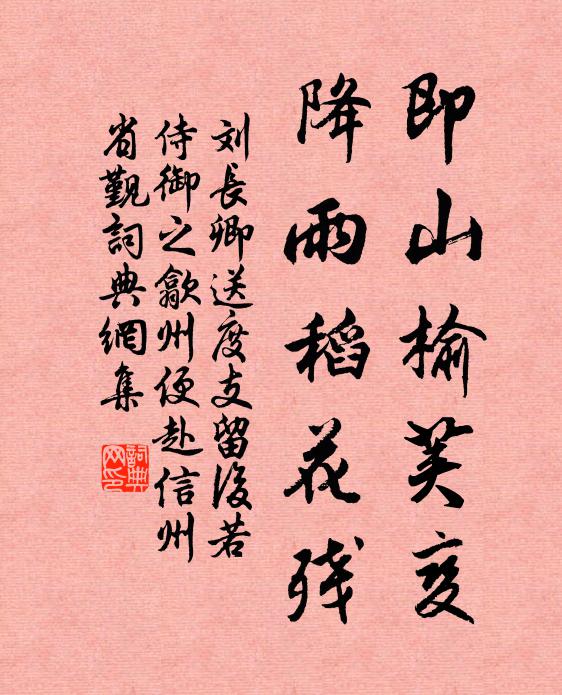 即山榆荚变
降雨稻花残
刘長卿送度支留後若
侍御之歙州便赴信州
省覲詞典網集
詞典网印